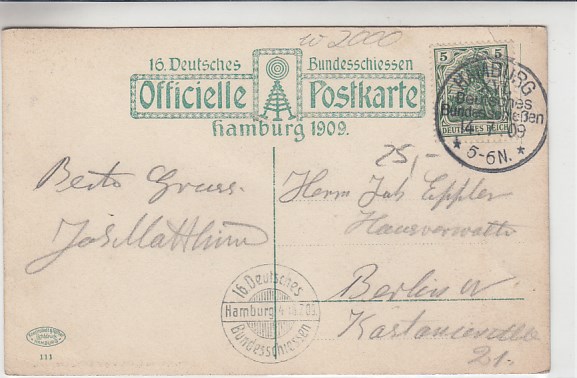 w 2000
16. Deutsches Bundesschiessen
Officielle Postkarte
Hamburg 1909.
5 5
DEUTSCHES REICH
HAMBURG
XVI.
Deutsches
Bundesschießen
14.7.09
* 5-6N. *
25,-
Beste Gruss.
Herrn Joh Eppler
Hausverwalter
Berlin W
21.
16. Deutsches
Hamburg 4-11.7.09
Bundesschiessen
111